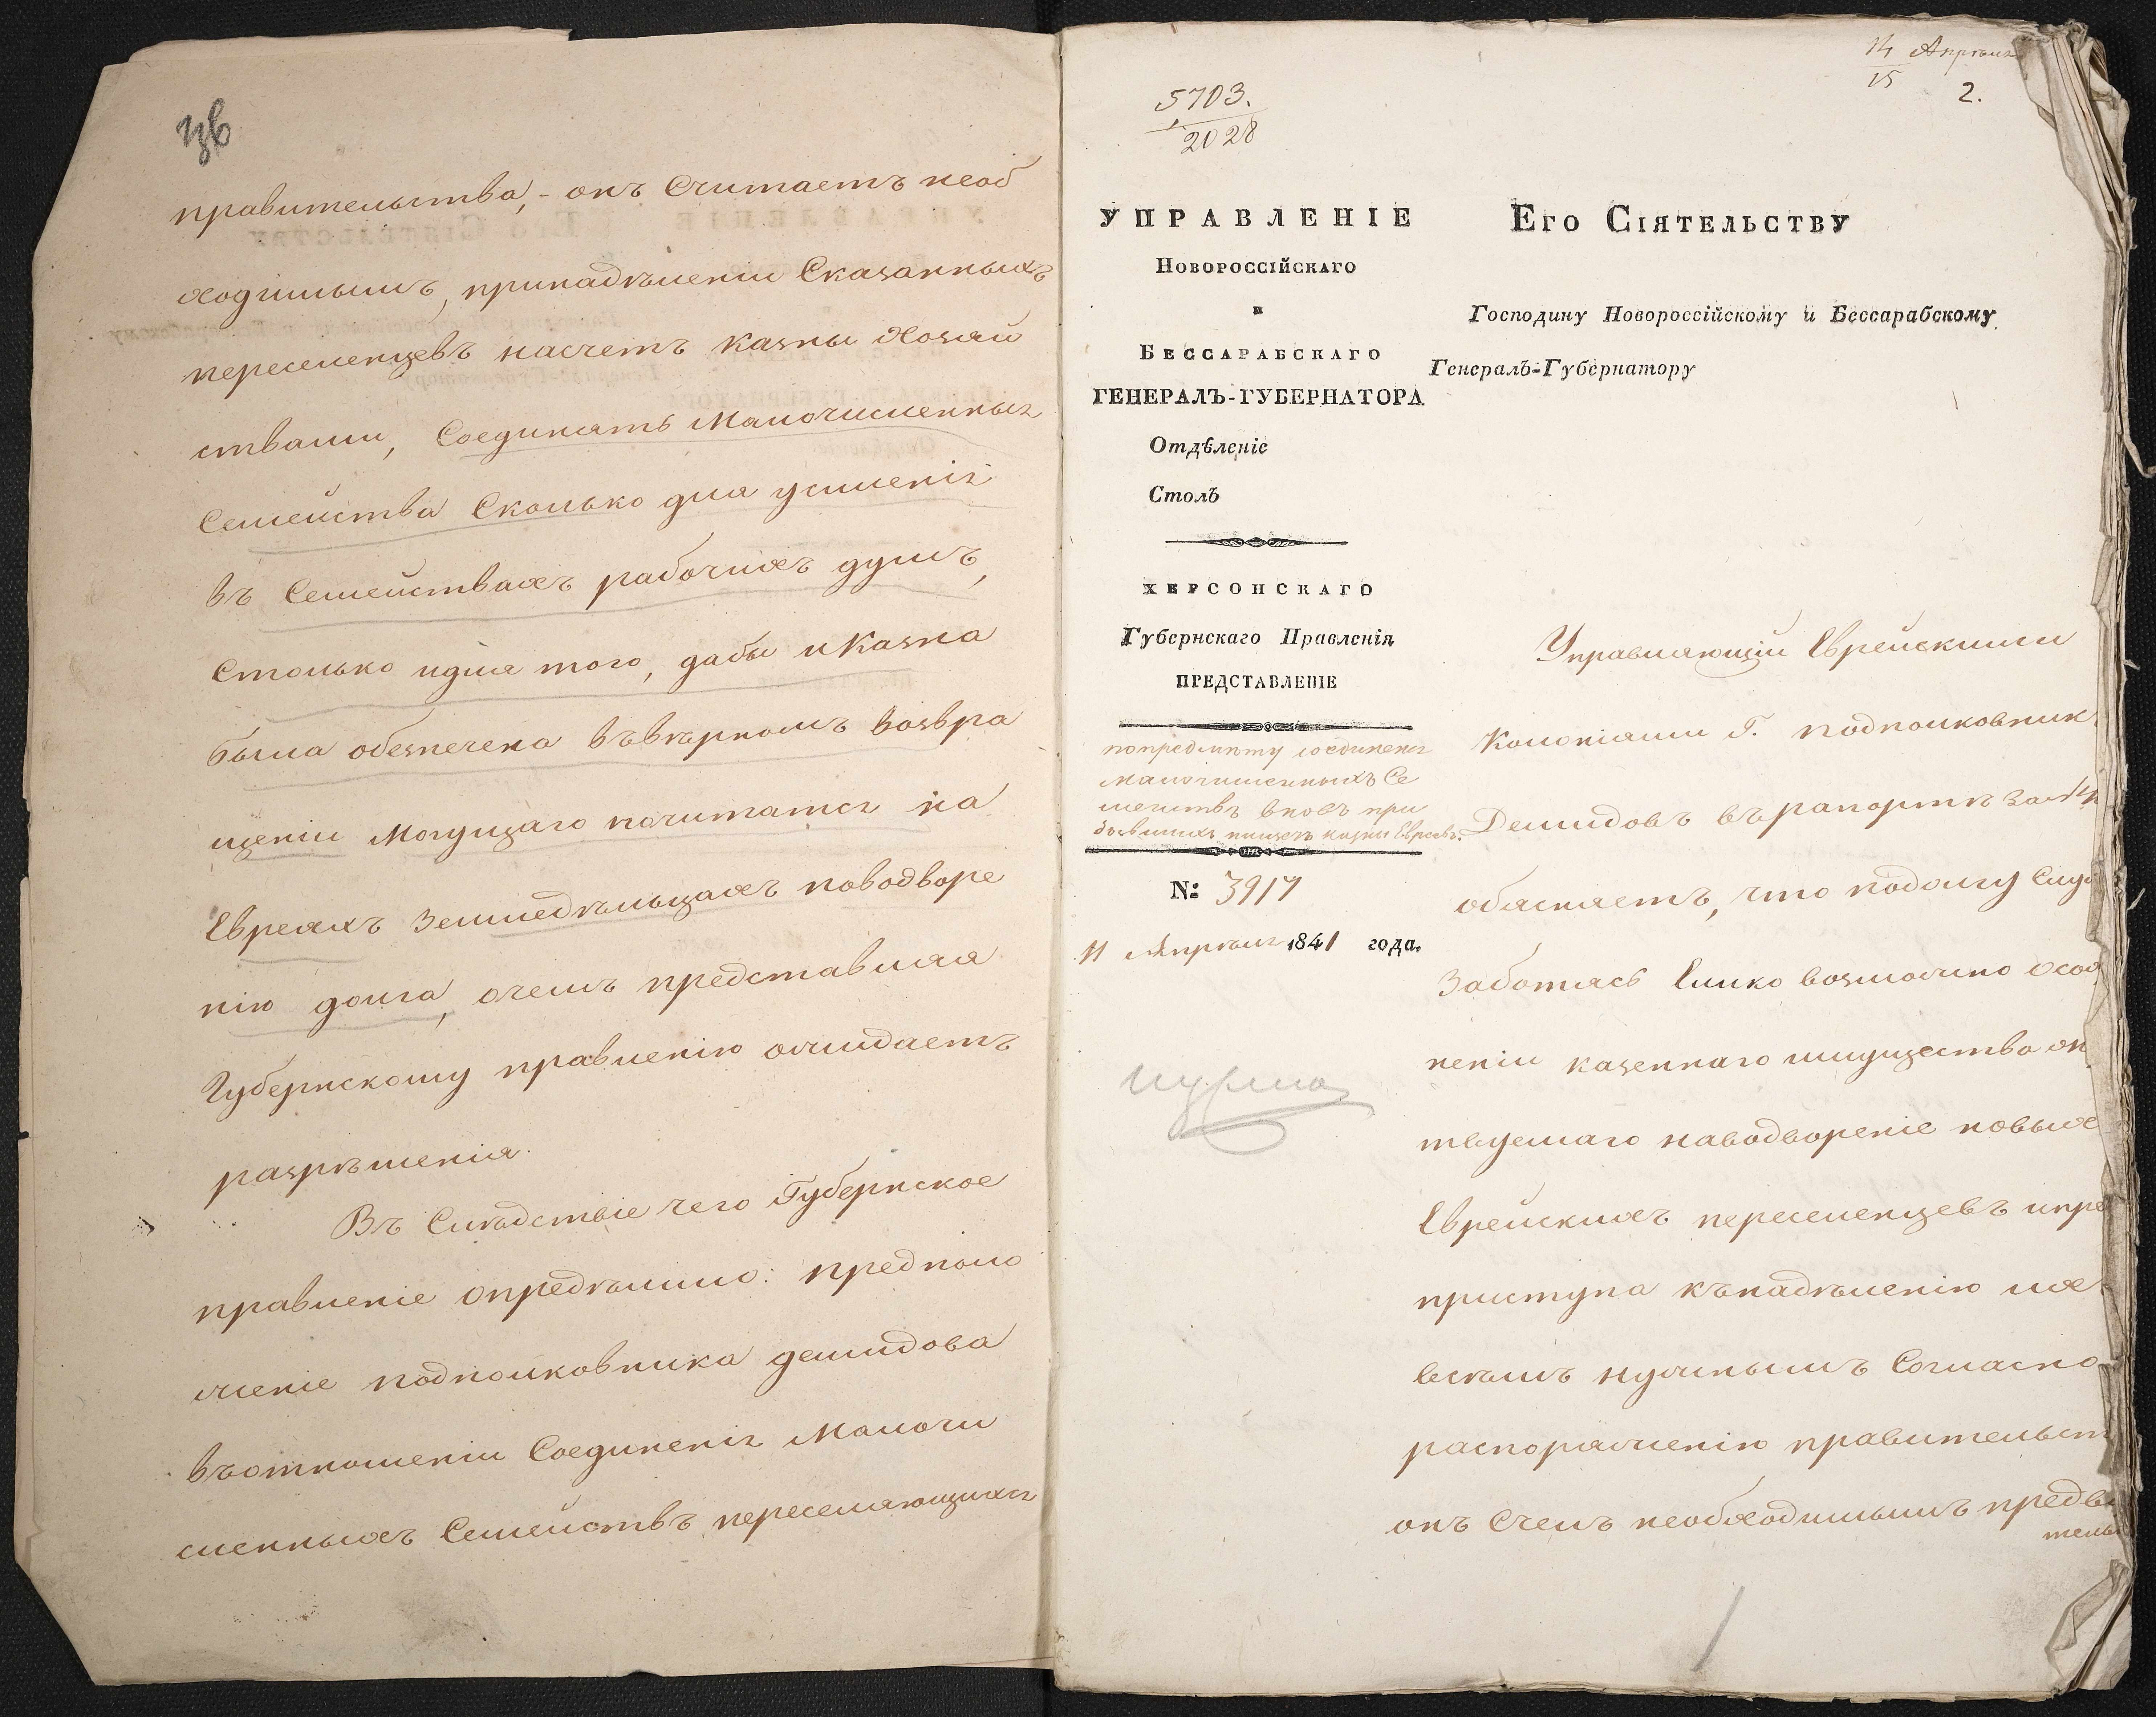 правительства, - онъ Считаетъ необ
ходимымъ, принадѣленіи Сказанныхъ
переселенцевъ насчетъ казны Хозяй
ствами, Соединять Малочисленныя
Семейства Сколько для усиленія
въ Семействахъ рабочихъ душъ,
Столько идля того, дабы иКазна
была обезпечена въвѣрномъ возвра
щеніи Могущаго почитатся на
Евреяхъ Земледѣльцахъ поводворе
нію долга, очемъ представляя
Губернскому правленію ожидаетъ
разрѣшенія.
Въ Слѣдствіе чего Губернское
правленіе опредѣлило: предполо
женіе подполковника демидова
въотношеніи Соединенія Малочи
сленныхъ Семействъ переселяющихся
14 Апрѣля
15
2.
5703.
2028
УПРАВЛЕНІЕ
Новороссійскаго
и
Бессарабскаго
ГЕНЕРАЛЪ-ГУБЕРНАТОРА
Отдѣленіе
Столъ
ХЕРСОНСКАГО
Губернскаго Правленія
ПРЕДСТАВЛЕНІЕ
попредмѣту соединенія
малочисленныхъ Се
мействъ вновь при
бывшихъ насчетъ казны Евреевъ.
№: 3917
11 Апрѣля 1841 года.
Его Сіятельству
Господину Новороссійскому и Бессарабскому
Генералъ-Губернатору
Управляющій Еврейскими
Колоніями Г. подполковник
Демидовъ върапортѣ за №
обясняетъ, что подолгу Слу
Заботясь Елико возможно осо
неніи казеннаго имущества
твуемаго наводвореніе новых
Еврейскихъ переселенцевъ ипре
приступа кънадѣленію их
всѣмъ нужнымъ Согласно
распоряженію правительст
онъ Счелъ необходимымъ предв
тель